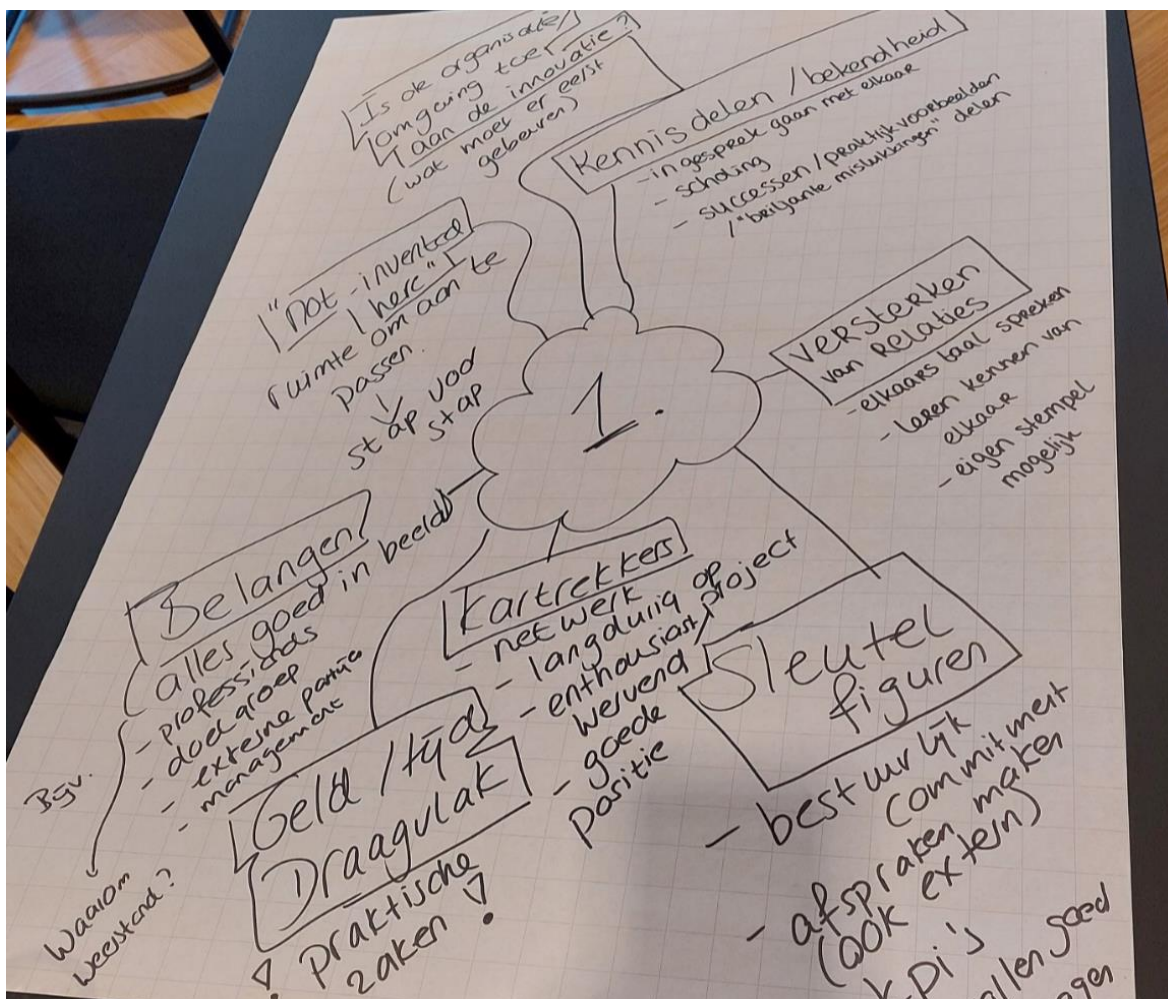 Is de organisatie/
omgeving toe
aan de innovatie?
(wat moet er eerst
gebeuren)
Kennis delen / bekendheid
- in gesprek gaan met elkaar
- scholing
- successen / praktijkvoorbeelden
/ "briljante mislukkingen" delen
"not-invented
here"
ruimte om aan te
passen.
stap voor
stap
1.
versterken
van Relaties
- elkaars taal spreken
- leren kennen van
elkaar
- eigen stempel
mogelijk
Belangen
(alles goed in beeld)
- professionals
- doelgroep
- externe partijen
- management
Bijv.
Waarom
weerstand?
Geld / tijd
Draagvlak
! praktische
zaken !
Kartrekkers
- netwerk
- langdurig op project
- enthousiast/
wervend
- goede
positie
Sleutel
figuren
- bestuurlijk
commitment
- afspraken maken
(ook extern)
kpi's
allen goed